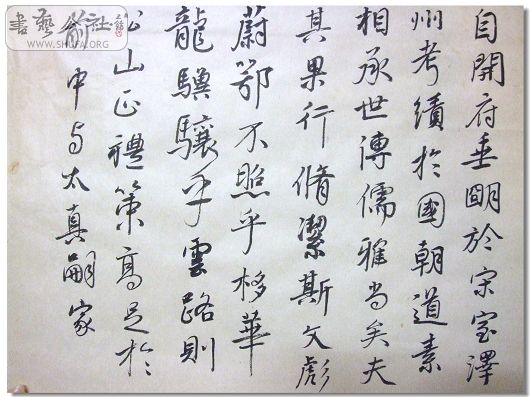 自開府垂眀於宋室澤
州考績於國朝道素
相承世傳儒雅尚矣夫
其果行脩潔斯文彪
蔚鄂不照乎栘華
龍驥驤乎雲路則
公山正禮策高足於
前中与太真嗣家
書藝公社
WWW.SHUFA.ORG